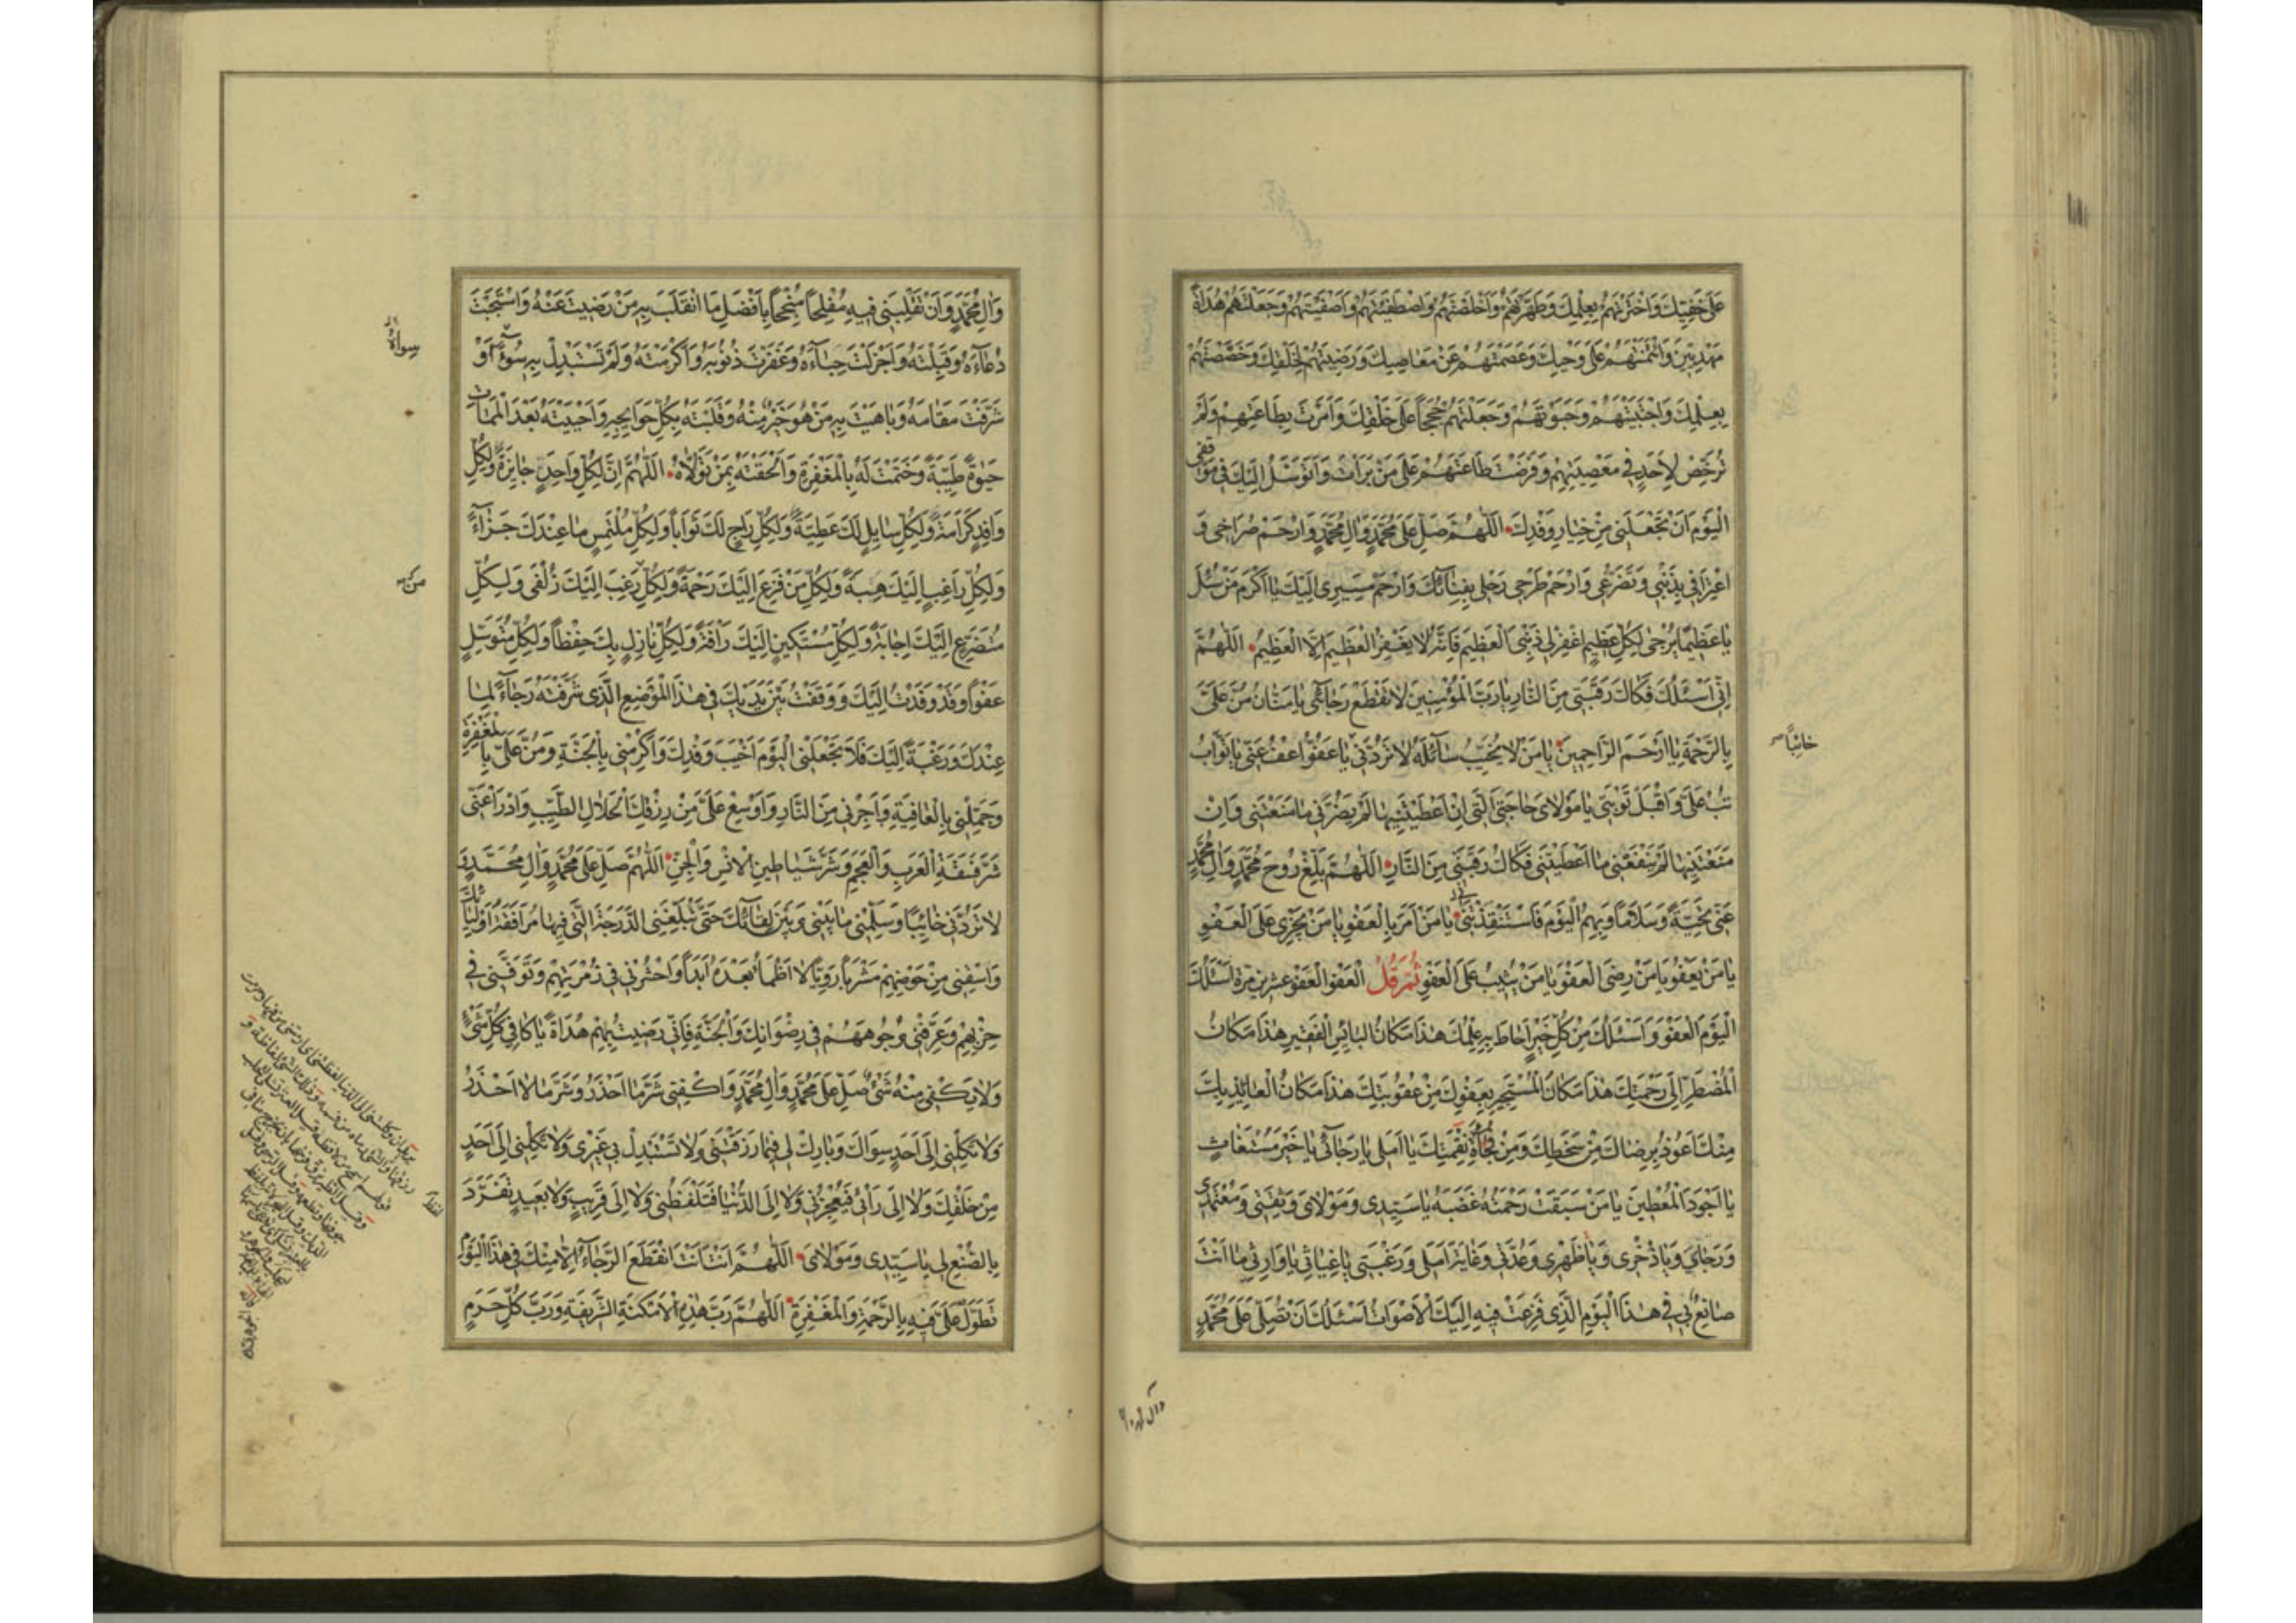 عَلَى خَفِيِّكَ وَاخْتَرْتَهُمْ بِعِلْمِكَ وَطَهَّرْتَهُمْ وَاَخْلَصْتَهُمْ وَاصْطَفَيْتَهُمْ وَاَصْفَيْتَهُمْ وَجَعَلْتَهُمْ هُدَاةً
مَهْدِيِّينَ وَائْتَمَنْتَهُمْ عَلَى وَحْيِكَ وَعَصَمْتَهُمْ عَنْ مَعَاصِيكَ وَرَضِيتَهُمْ لِخَلْقِكَ وَخَصَصْتَهُمْ
بِعِلْمِكَ وَاجْتَبَيْتَهُمْ وَحَبَوْتَهُمْ وَجَعَلْتَهُمْ حُجَجاً عَلَى خَلْقِكَ وَاَمَرْتَ بِطَاعَتِهِمْ وَلَمْ
تُرَخِّصْ لِاَحَدٍ فِي مَعْصِيَتِهِمْ وَفَرَضْتَ طَاعَتَهُمْ عَلَى مَنْ بَرَاْتَ وَاَتَوَسَّلُ اِلَيْكَ فِي مَوْقِفِي
الْيَوْمَ اَنْ تَجْعَلَنِي مِنْ خِيَارِ وَفْدِكَ اَللّٰهُمَّ صَلِّ عَلَى مُحَمَّدٍ وَاٰلِ مُحَمَّدٍ وَارْحَمْ صُرَاخِي وَ
اعْتِرَافِي بِذَنْبِي وَتَضَرُّعِي وَارْحَمْ طَرْحِي رَحْلِي بِفِنَائِكَ وَارْحَمْ مَسِيرِي اِلَيْكَ يَا اَكْرَمَ مَنْ سُئِلَ
يَا عَظِيمًا يُرْجَى لِكُلِّ عَظِيمٍ اغْفِرْ لِي ذَنْبِيَ الْعَظِيمَ فَاِنَّهُ لَا يَغْفِرُ الْعَظِيمَ اِلَّا الْعَظِيمُ اَللّٰهُمَّ
اِنِّي اَسْئَلُكَ فَكَاكَ رَقَبَتِي مِنَ النَّارِ يَا رَبَّ الْمُؤْمِنِينَ لَا تَقْطَعْ رَجَائِي يَا مَنَّانُ مُنَّ عَلَيَّ
بِالرَّحْمَةِ يَا اَرْحَمَ الرَّاحِمِينَ يَا مَنْ لَا يُخَيِّبُ سَائِلَهُ لَا تَرُدَّنِي يَا عَفُوُّ اعْفُ عَنِّي يَا تَوَّابُ
خائبًا
تُبْ عَلَيَّ وَاقْبَلْ تَوْبَتِي يَا مَوْلَايَ حَاجَتِيَ الَّتِي اِنْ اَعْطَيْتَنِيهَا لَمْ يَضُرَّنِي مَا مَنَعْتَنِي وَاِنْ
مَنَعْتَنِيهَا لَمْ يَنْفَعْنِي مَا اَعْطَيْتَنِي فَكَاكَ رَقَبَتِي مِنَ النَّارِ اَللّٰهُمَّ بَلِّغْ رُوحَ مُحَمَّدٍ وَاٰلِ مُحَمَّدٍ
عَنِّي تَحِيَّةً وَسَلَامًا وَبِهِمُ الْيَوْمَ فَاسْتَنْقِذْنِي يَا مَنْ اَمَرَ بِالْعَفْوِ يَا مَنْ يَجْزِي عَلَى الْعَفْوِ
يَا مَنْ يَعْفُو يَا مَنْ رَضِيَ الْعَفْوَ يَا مَنْ يُثِيبُ عَلَى الْعَفْوِ ثُمَّ قُلْ الْعَفْوَ الْعَفْوَ عشرين مرة اَسْئَلُكَ
الْيَوْمَ الْعَفْوَ وَاَسْئَلُكَ مِنْ كُلِّ خَيْرٍ اَحَاطَ بِهِ عِلْمُكَ هٰذَا مَكَانُ الْبَائِسِ الْفَقِيرِ هٰذَا مَكَانُ
الْمُضْطَرِّ اِلَى رَحْمَتِكَ هٰذَا مَكَانُ الْمُسْتَجِيرِ بِعَفْوِكَ مِنْ عُقُوبَتِكَ هٰذَا مَكَانُ الْعَائِذِ بِكَ
مِنْكَ اَعُوذُ بِرِضَاكَ مِنْ سَخَطِكَ وَمِنْ فُجَاْةِ نَقِمَتِكَ يَا اَمَلِي يَا رَجَائِي يَا خَيْرَ مُسْتَغَاثٍ
يَا اَجْوَدَ الْمُعْطِينَ يَا مَنْ سَبَقَتْ رَحْمَتُهُ غَضَبَهُ يَا سَيِّدِي وَمَوْلَايَ وَثِقَتِي وَمُعْتَمَدِي
وَرَجَايَ وَيَا ذُخْرِي وَيَا ظَهْرِي وَعُدَّتِي وَغَايَةَ اَمَلِي وَرَغْبَتِي يَا غِيَاثِي يَا وَارِثِي مَا اَنْتَ
صَانِعٌ بِي فِي هٰذَا الْيَوْمِ الَّذِي فَزِعَتْ فِيهِ اِلَيْكَ الْاَصْوَاتُ اَسْئَلُكَ اَنْ تُصَلِّيَ عَلَى مُحَمَّدٍ
وَاٰلِ مُحَمَّدٍ وَاَنْ تَقْلِبَنِي فِيهِ مُفْلِحًا مُنْجِحًا بِاَفْضَلِ مَا انْقَلَبَ بِهِ مَنْ رَضِيتَ عَنْهُ وَاسْتَجَبْتَ
دُعَاءَهُ وَقَبِلْتَهُ وَاَجْزَلْتَ حِبَاءَهُ وَغَفَرْتَ ذُنُوبَهُ وَاَكْرَمْتَهُ وَلَمْ تَسْتَبْدِلْ بِهِ سُوءً اَوْ
سواهُ
شَرَّفْتَ مَقَامَهُ وَبَاهَيْتَ بِهِ مَنْ هُوَ خَيْرٌ مِنْهُ وَقَلَبْتَهُ بِكُلِّ حَوَايِجِهِ وَاَحْيَيْتَهُ بَعْدَ الْمَمَاتِ
حَيٰوةً طَيِّبَةً وَخَتَمْتَ لَهُ بِالْمَغْفِرَةِ وَاَلْحَقْتَهُ بِمَنْ تَوَلَّاهُ اَللّٰهُمَّ اِنَّ لِكُلِّ وَاحِدٍ جَايِزَةً وَلِكُلِّ
وَافِدٍ كَرَامَةً وَلِكُلِّ سَايِلٍ لَكَ عَطِيَّةً وَلِكُلِّ رَاجٍ لَكَ ثَوَابًا وَلِكُلِّ مُلْتَمِسٍ مَا عِنْدَكَ جَزَاءً
وَلِكُلِّ رَاغِبٍ اِلَيْكَ هِبَةً وَلِكُلِّ مَنْ فَزِعَ اِلَيْكَ رَحْمَةً وَلِكُلِّ رَغِبَ اِلَيْكَ زُلْفَى وَلِكُلِّ
مُتَضَرِّعٍ اِلَيْكَ اِجَابَةً وَلِكُلِّ مُسْتَكِينٍ اِلَيْكَ رَاْفَةً وَلِكُلِّ نَازِلٍ بِكَ حِفْظًا وَلِكُلِّ مُتَوَسِّلٍ
عَفْوًا وَقَدْ وَفَدْتُ اِلَيْكَ وَوَقَفْتُ بَيْنَ يَدَيْكَ فِي هٰذَا الْمَوْضِعِ الَّذِي شَرَّفْتَهُ رَجَاءً لِمَا
عِنْدَكَ وَرَغْبَةً اِلَيْكَ فَلَا تَجْعَلْنِي الْيَوْمَ اَخْيَبَ وَفْدِكَ وَاَكْرِمْنِي بِالْجَنَّةِ وَمُنَّ عَلَيَّ بِالْمَغْفِرَةِ
وَجَمِّلْنِي بِالْعَافِيَةِ وَاَجِرْنِي مِنَ النَّارِ وَاَوْسِعْ عَلَيَّ مِنْ رِزْقِكَ الْحَلَالِ الطَّيِّبِ وَادْرَاْ عَنِّي
شَرَّ فَسَقَةِ الْعَرَبِ وَالْعَجَمِ وَشَرَّ شَيَاطِينِ الْاِنْسِ وَالْجِنِّ اَللّٰهُمَّ صَلِّ عَلَى مُحَمَّدٍ وَاٰلِ مُحَمَّدٍ وَ
لَا تَرُدَّنِي خَائِبًا وَسَلِّمْنِي مَا بَيْنِي وَبَيْنَ لِقَائِكَ حَتَّى تُبَلِّغَنِي الدَّرَجَةَ الَّتِي فِيهَا مُرَافَقَةُ اَوْلِيَائِكَ
وَاسْقِنِي مِنْ حَوْضِهِمْ مَشْرَبًا رَوِيًّا لَا اَظْمَاُ بَعْدَهُ اَبَدًا وَاحْشُرْنِي فِي زُمْرَتِهِمْ وَتَوَفَّنِي فِي
حِزْبِهِمْ وَعَرِّفْنِي وُجُوهَهُمْ فِي رِضْوَانِكَ وَالْجَنَّةِ فَاِنِّي رَضِيتُ بِهِمْ هُدَاةً يَا كَافِيَ كُلِّ شَيْءٍ
وَلَا يَكْفِي مِنْهُ شَيْءٌ صَلِّ عَلَى مُحَمَّدٍ وَاٰلِ مُحَمَّدٍ وَاكْفِنِي شَرَّ مَا اَحْذَرُ وَشَرَّ مَا لَا اَحْذَرُ
وَلَا تَكِلْنِي اِلَى اَحَدٍ سِوَاكَ وَبَارِكْ لِي فِيمَا رَزَقْتَنِي وَلَا تَسْتَبْدِلْ بِي غَيْرِي وَلَا تَكِلْنِي اِلَى اَحَدٍ
مِنْ خَلْقِكَ وَلَا اِلَى رَاْئِي فَيُعْجِزَنِي وَلَا اِلَى الدُّنْيَا فَتَلْفِظَنِي وَلَا اِلَى قَرِيبٍ وَلَا بَعِيدٍ تَفَرَّدْ
بِالصُّنْعِ لِي يَا سَيِّدِي وَمَوْلَايَ اَللّٰهُمَّ اَنْتَ اَنْتَ انْقَطَعَ الرَّجَاءُ اِلَّا مِنْكَ فِي هٰذَا الْيَوْمِ
تَطَوَّلْ عَلَيَّ فِيهِ بِالرَّحْمَةِ وَالْمَغْفِرَةِ اَللّٰهُمَّ رَبَّ هٰذِهِ الْاَمْكِنَةِ الشَّرِيفَةِ وَرَبَّ كُلِّ حَرَمٍ